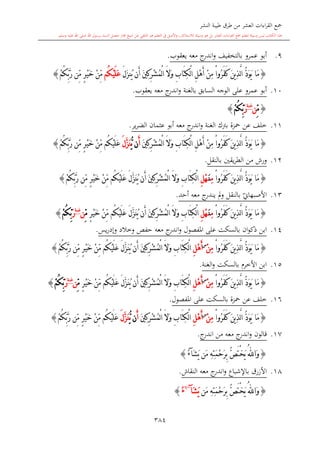 جمع القراءات العشر من طرق طيبة النشر
٩. أبو عمرو بالتخفيف واندرج معه يعقوب.
﴿ مَّا يَوَدُّ الَّذِينَ كَفَرُوا مِنْ أَهْلِ الْكِتَابِ وَلَا الْمُشْرِكِينَ أَن يُنزَلَ عَلَيْكُم مِّنْ خَيْرٍ مِّن رَّبِّكُمْ ﴾
١٠. أبو عمرو على الوجه السابق بالغنة واندرج معه يعقوب.
﴿ مِّن رَّبِّكُمْ ﴾
١١. خلف عن حمزة بترك الغنة واندرج معه أبو عثمان الضرير.
﴿ مَّا يَوَدُّ الَّذِينَ كَفَرُوا مِنْ أَهْلِ الْكِتَابِ وَلَا الْمُشْرِكِينَ أَن يُنَزَّلَ عَلَيْكُم مِّنْ خَيْرٍ مِّن رَّبِّكُمْ ﴾
١٢. ورش من الطريقين بالنقل.
﴿ مَّا يَوَدُّ الَّذِينَ كَفَرُوا مِنَ اهْلِ الْكِتَابِ وَلَا الْمُشْرِكِينَ أَن يُنَزَّلَ عَلَيْكُم مِّنْ خَيْرٍ مِّن رَّبِّكُمْ ﴾
١٣. الأصبهاني بالنقل ولم يندرج معه أحد.
﴿ مَّا يَوَدُّ الَّذِينَ كَفَرُوا مِنَ اهْلِ الْكِتَابِ وَلَا الْمُشْرِكِينَ أَن يُنَزَّلَ عَلَيْكُم مِّنْ خَيْرٍ مِّن رَّبِّكُمْ ﴾
١٤. ابن ذكوان بالسكت على المفصول واندرج معه حفص وخلاد وإدريس.
﴿ مَّا يَوَدُّ الَّذِينَ كَفَرُوا مِنْ أَهْلِ الْكِتَابِ وَلَا الْمُشْرِكِينَ أَن يُنَزَّلَ عَلَيْكُم مِّنْ خَيْرٍ مِّن رَّبِّكُمْ ﴾
١٥. ابن الأخرم بالسكت والغنة.
﴿ مَّا يَوَدُّ الَّذِينَ كَفَرُوا مِنْ أَهْلِ الْكِتَابِ وَلَا الْمُشْرِكِينَ أَن يُنَزَّلَ عَلَيْكُم مِّنْ خَيْرٍ مِّن رَّبِّكُمْ ﴾
١٦. خلف عن حمزة بالسكت على المفصول.
﴿ مَّا يَوَدُّ الَّذِينَ كَفَرُوا مِنْ أَهْلِ الْكِتَابِ وَلَا الْمُشْرِكِينَ أَن يُنَزَّلَ عَلَيْكُم مِّنْ خَيْرٍ مِّن رَّبِّكُمْ ﴾
١٧. قالون واندرج معه من اندرج.
﴿ وَاللَّهُ يَخْتَصُّ بِرَحْمَتِهِ مَن يَشَاءُ ﴾
١٨. الأزرق بالإشباع واندرج معه النقاش.
﴿ وَاللَّهُ يَخْتَصُّ بِرَحْمَتِهِ مَن يَشَاءُ ﴾
٣٨٤